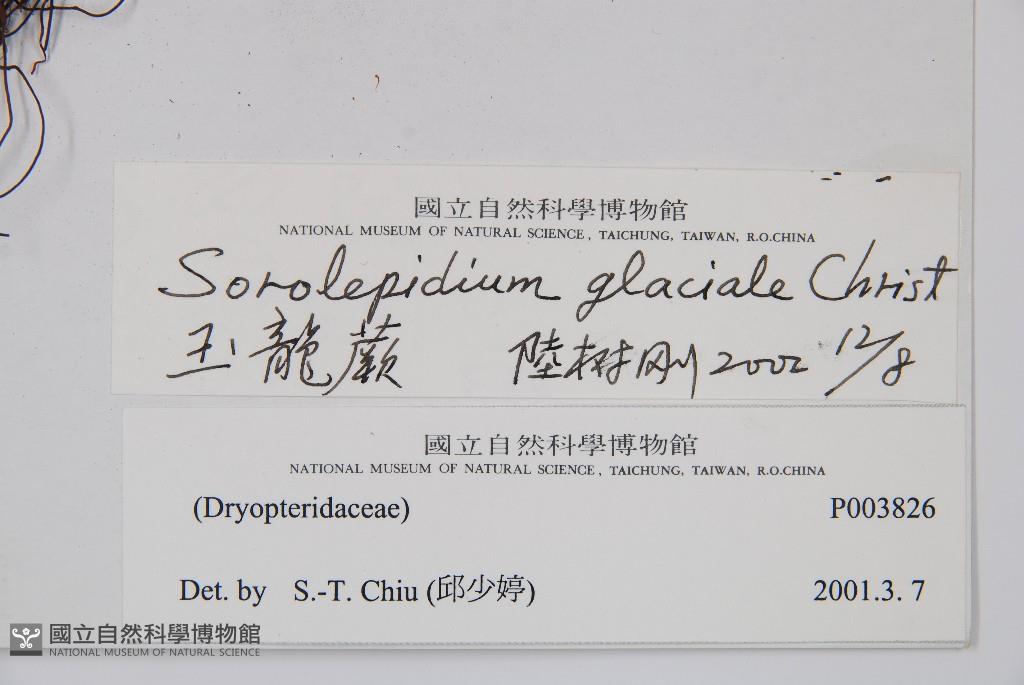 國立自然科學博物館
NATIONAL MUSEUM OF NATURAL SCIENCE, TAICHUNG, TAIWAN, R.O.CHINA
Sorolepidium glaciale Christ
玉龍蕨 陸樹刚 2002 12/8
國立自然科學博物館
NATIONAL MUSEUM OF NATURAL SCIENCE, TAICHUNG, TAIWAN, R.O.CHINA
(Dryopteridaceae) P003826
Det. by S.-T. Chiu (邱少婷) 2001.3. 7
國立自然科學博物館
NATIONAL MUSEUM OF NATURAL SCIENCE